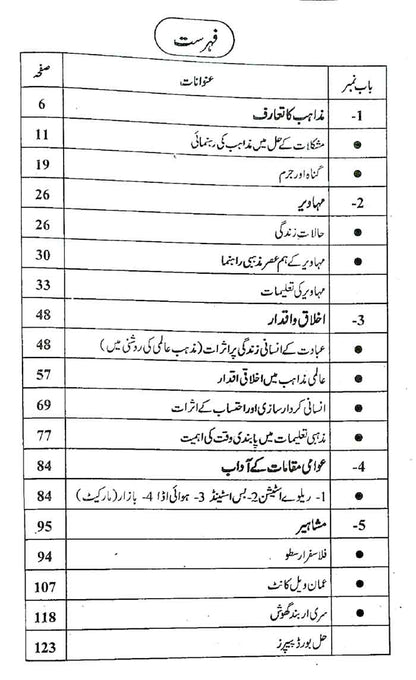 فہرست
باب نمبر عنوانات صفحہ
1- مذاہب کا تعارف 6
● مشکلات کے حل میں مذاہب کی رہنمائی 11
● گناہ اور جرم 19
2- مہاویر 26
● حالات زندگی 26
● مہاویر کے ہم عصر مذہبی راہنما 30
مہاویر کی تعلیمات 33
3- اخلاق و اقدار 48
● عبادت کے انسانی زندگی پر اثرات (مذہب عالمی کی روشنی میں) 48
● عالمی مذاہب میں اخلاقی اقدار 57
● انسانی کردار سازی اور احتساب کے اثرات 69
● مذہبی تعلیمات میں پابندی وقت کی اہمیت 77
4- عوامی مقامات کے آداب 84
● 1- ریلوے اسٹیشن 2- بس اسٹینڈ 3- ہوائی اڈا 4- بازار (مارکیٹ) 84
5- مشاہیر 95
● فلاسفر ارسطو 94
● عمان ویل کانٹ 107
● سری اربند گھوش 118
حل بورڈ پیپرز 123